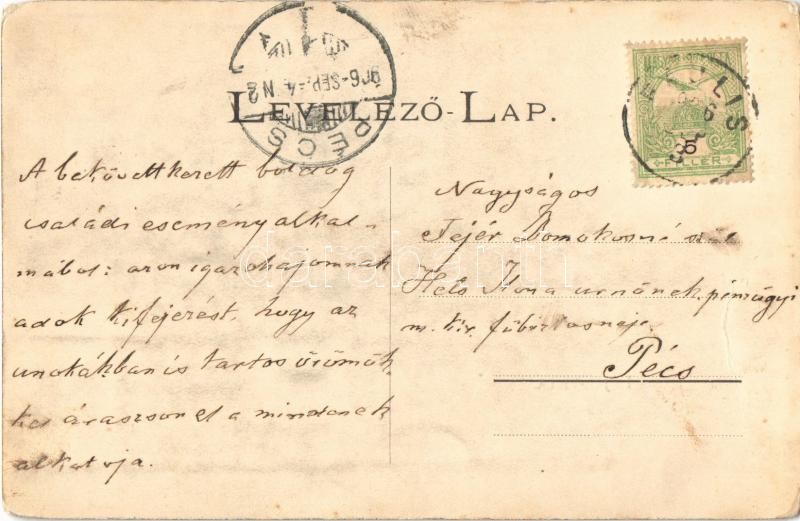 LEVELEZŐ-LAP.
PÉCS
906-SEP.-4. N2
5
FILLÉR
A bekövetkezett boldog
családi esemény alkal-
mából: azon igaz óhajomnak
adok kifejezést, hogy az
unokákban is tartos örömök-
kel áraszson el a mindenek
alkotója.
Nagyságos
Fejér Domokosné sz.
Ilona urnőnek pénzügyi
m. kir. főbiztosneje
Pécs
darabanth